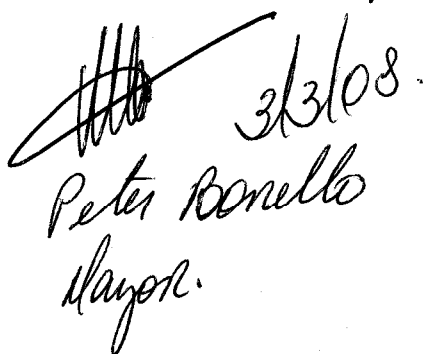 3/3/08.
Peter Bonello
Mayor.